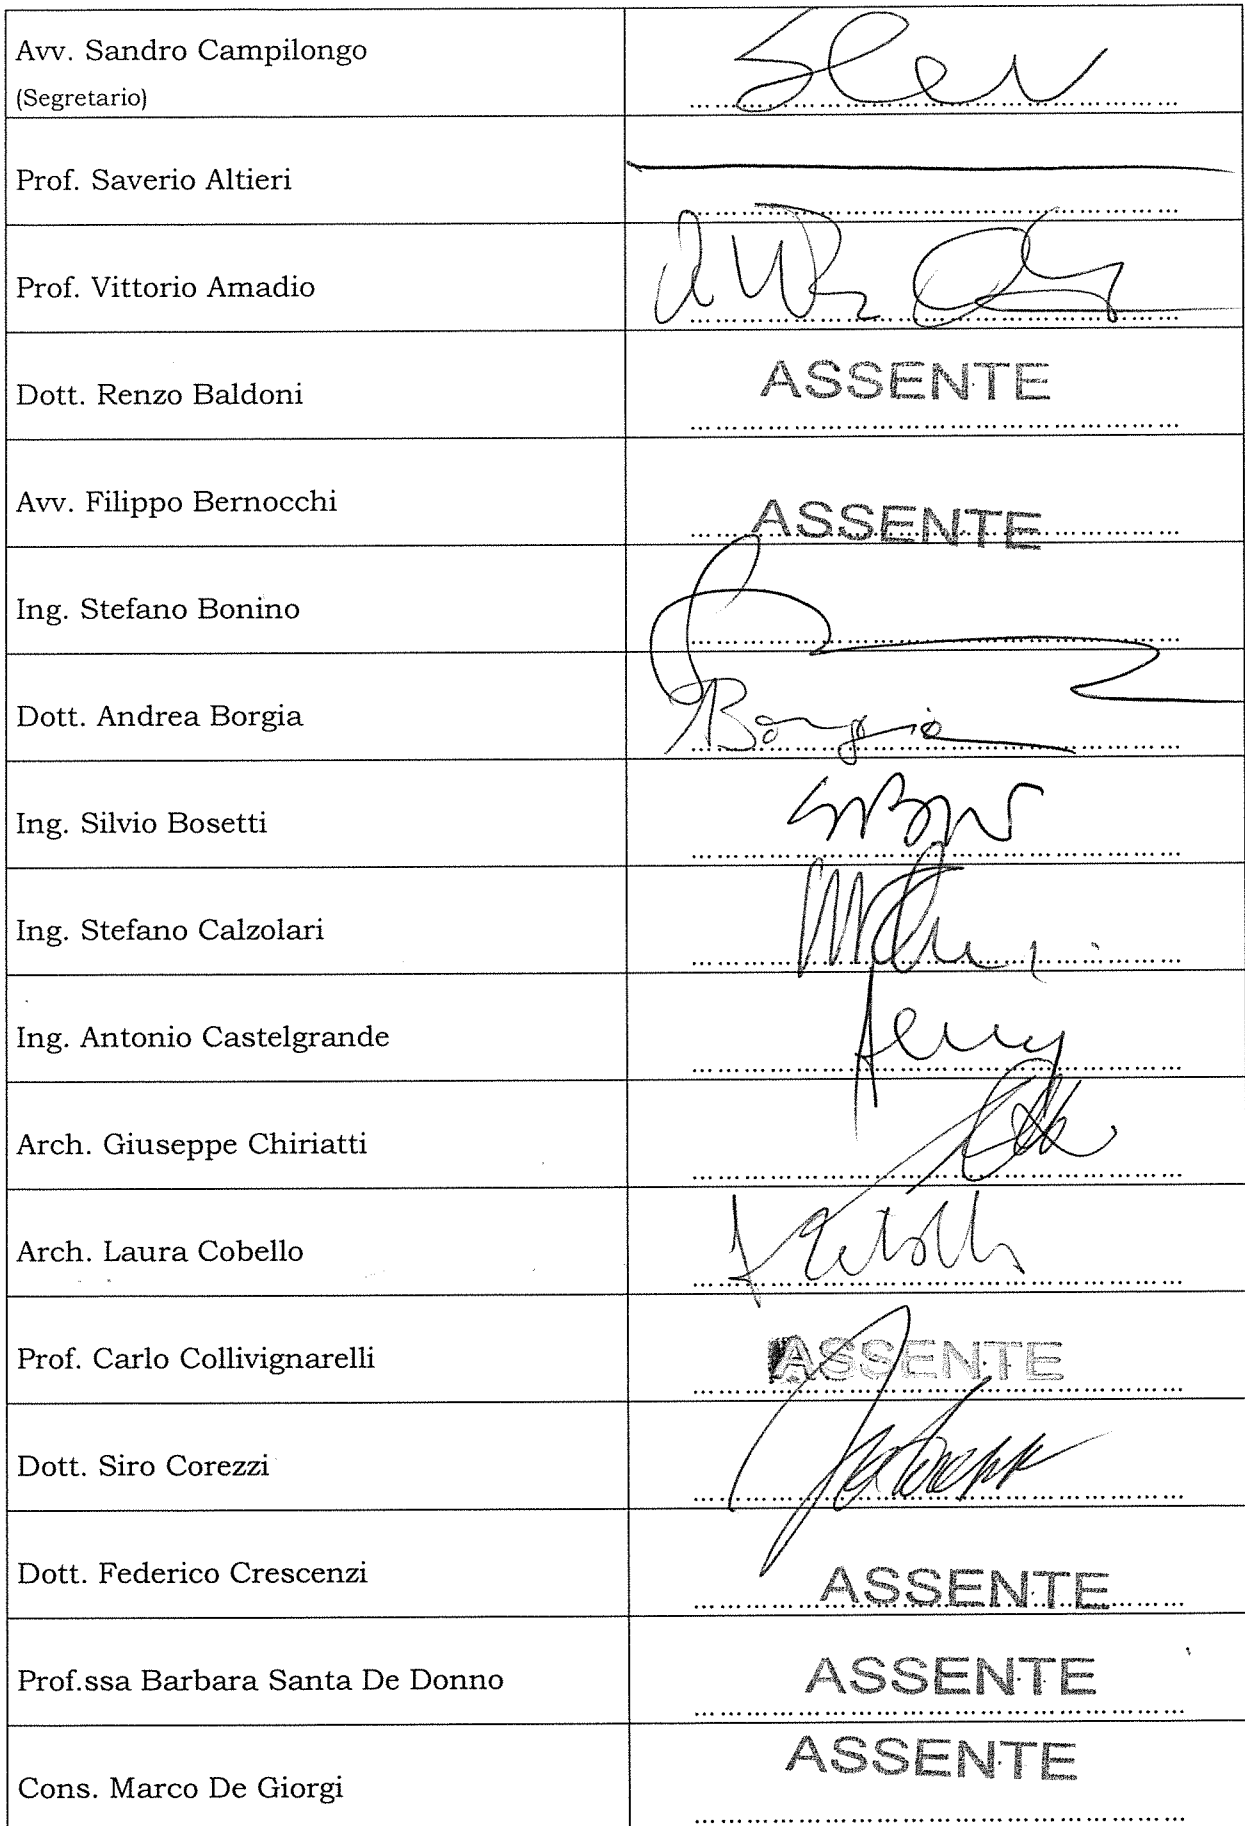 Avv. Sandro Campilongo
(Segretario)
Prof. Saverio Altieri
Prof. Vittorio Amadio
Dott. Renzo Baldoni
ASSENTE
Avv. Filippo Bernocchi
ASSENTE
Ing. Stefano Bonino
Dott. Andrea Borgia
Borgia
Ing. Silvio Bosetti
Ing. Stefano Calzolari
Ing. Antonio Castelgrande
Arch. Giuseppe Chiriatti
Arch. Laura Cobello
Prof. Carlo Collivignarelli
ASSENTE
Dott. Siro Corezzi
Dott. Federico Crescenzi
ASSENTE
Prof.ssa Barbara Santa De Donno
ASSENTE
Cons. Marco De Giorgi
ASSENTE